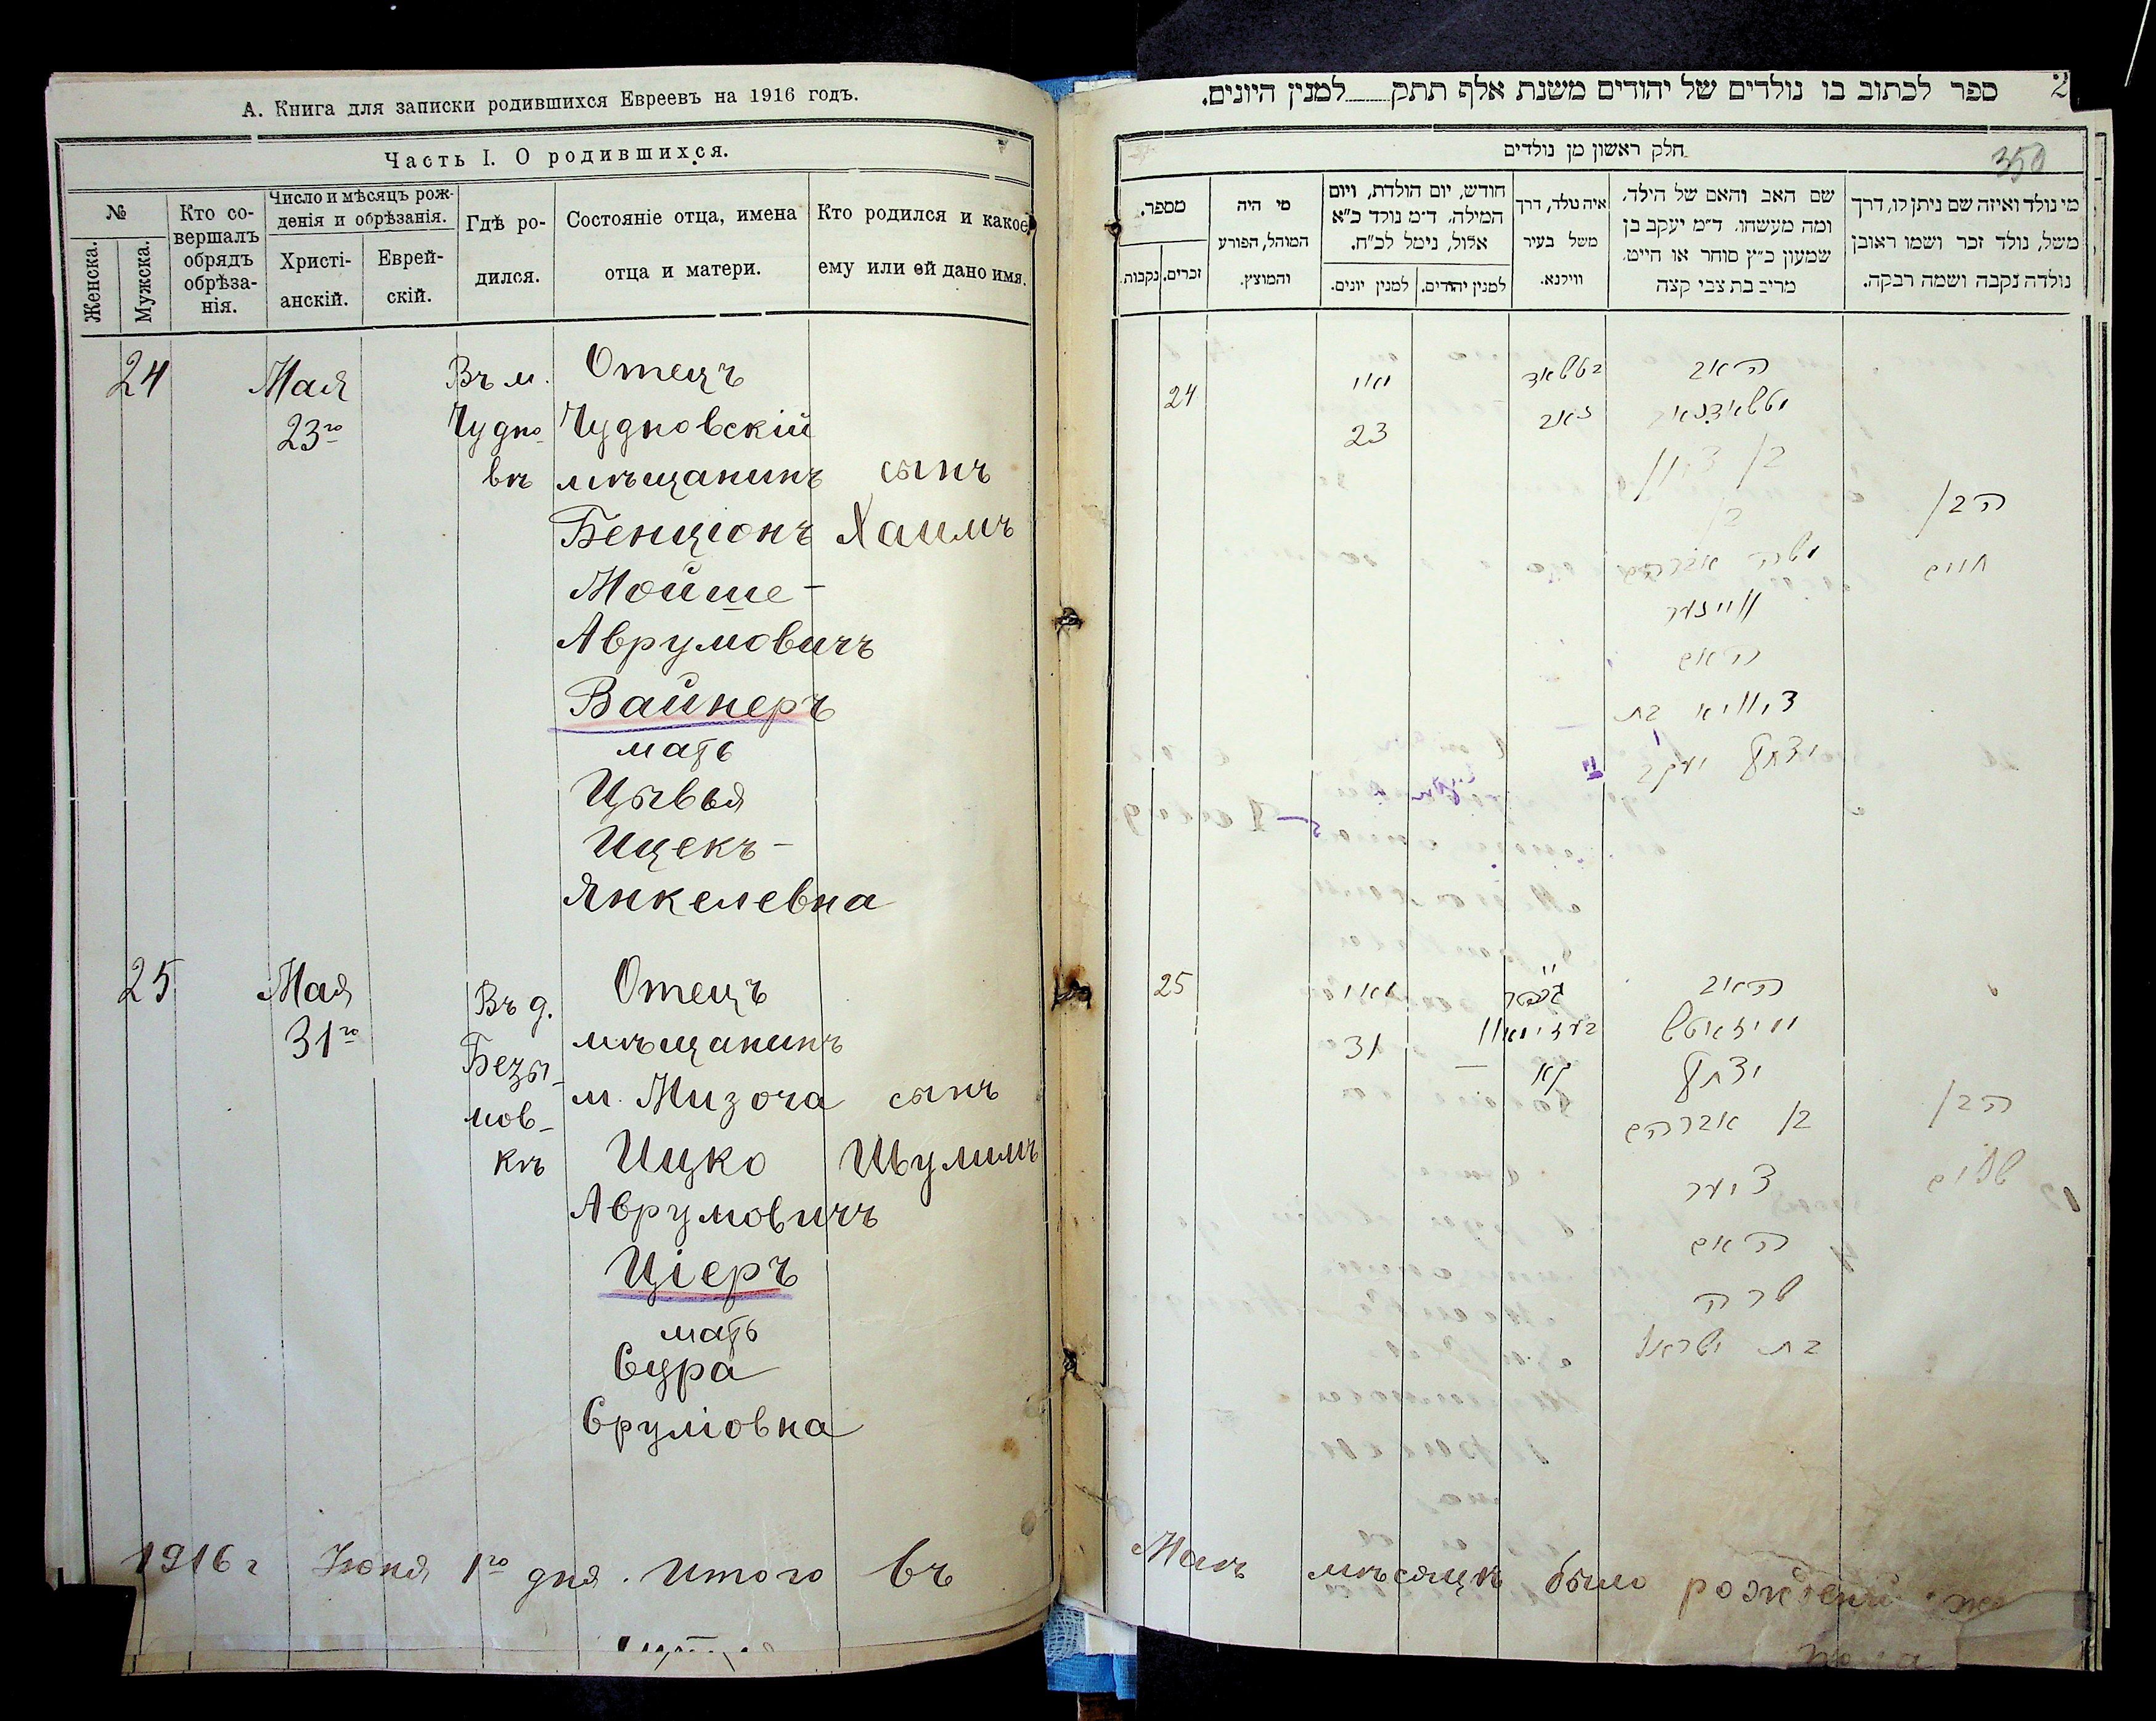 А. Книга для записки родившихся Евреевъ на 1916 годъ.
Часть I. О родившихся.
№
Женска.
Мужска.
Кто со-
вершалъ
обрядъ
обрѣза-
нія.
Число и мѣсяцъ рож-
денія и обрѣзанія.
Христі-
анскій.
Еврей-
скій.
Гдѣ ро-
дился.
Состояніе отца, имена
отца и матери.
Кто родился и какое
ему или ей дано имя.
24
Мая
23го
Въ м.
Чудно
вѣ
Отецъ
Чудновскій
мѣщанинъ
Бенціонъ
Мойше-
Аврумовичъ
Вайнеръ
мать
Цывья
Ицекъ-
Янкелевна
сынъ
Хаимъ
25
Мая
31го
Въ д.
Безы-
мов-
кѣ
Отецъ
мѣщанинъ
м. Мизоча
Ицко
Аврумовичъ
Ціеръ
мать
Сура
Срулiовна
сынъ
Шулимъ
1916 г Июня 1го дня. Итого въ
2
ספר לכתוב בו נולדים של יהודים משנת אלף תתק למנין היונים.
350
חלק ראשון מן נולדים
מספר.
זכרים.
נקבות.
מי היה
המוהל, הפורע
והמוצץ.
חודש, יום הולדת, ויום
המילה. ד״מ נולד כ״א
אלול, נימל לכ״ח.
למנין יהודים.
למנין יונים.
איה נולד, דרך
משל בעיר
ווילנא.
שם האב והאם של הילד,
ומה מעשהו. ד״מ יעקב בן
שמעון כ״ץ סוחר או חייט,
מרים בת צבי קצה
מי נולד ואיזה שם ניתן לו, דרך
משל, נולד זכר ושמו ראובן
נולדה נקבה ושמה רבקה.
24
מאי
23
האב
בן ציון
בן
משה אברהם
וויינער
האם
ציוויא בת
יצחק יעקב
הבן
חיים
25
מאי
31
האב
יצחק
בן אברהם
ציער
האם
שרה
בת ישראל
הבן
שלום
Маѣ мѣсяцѣ было рожденій